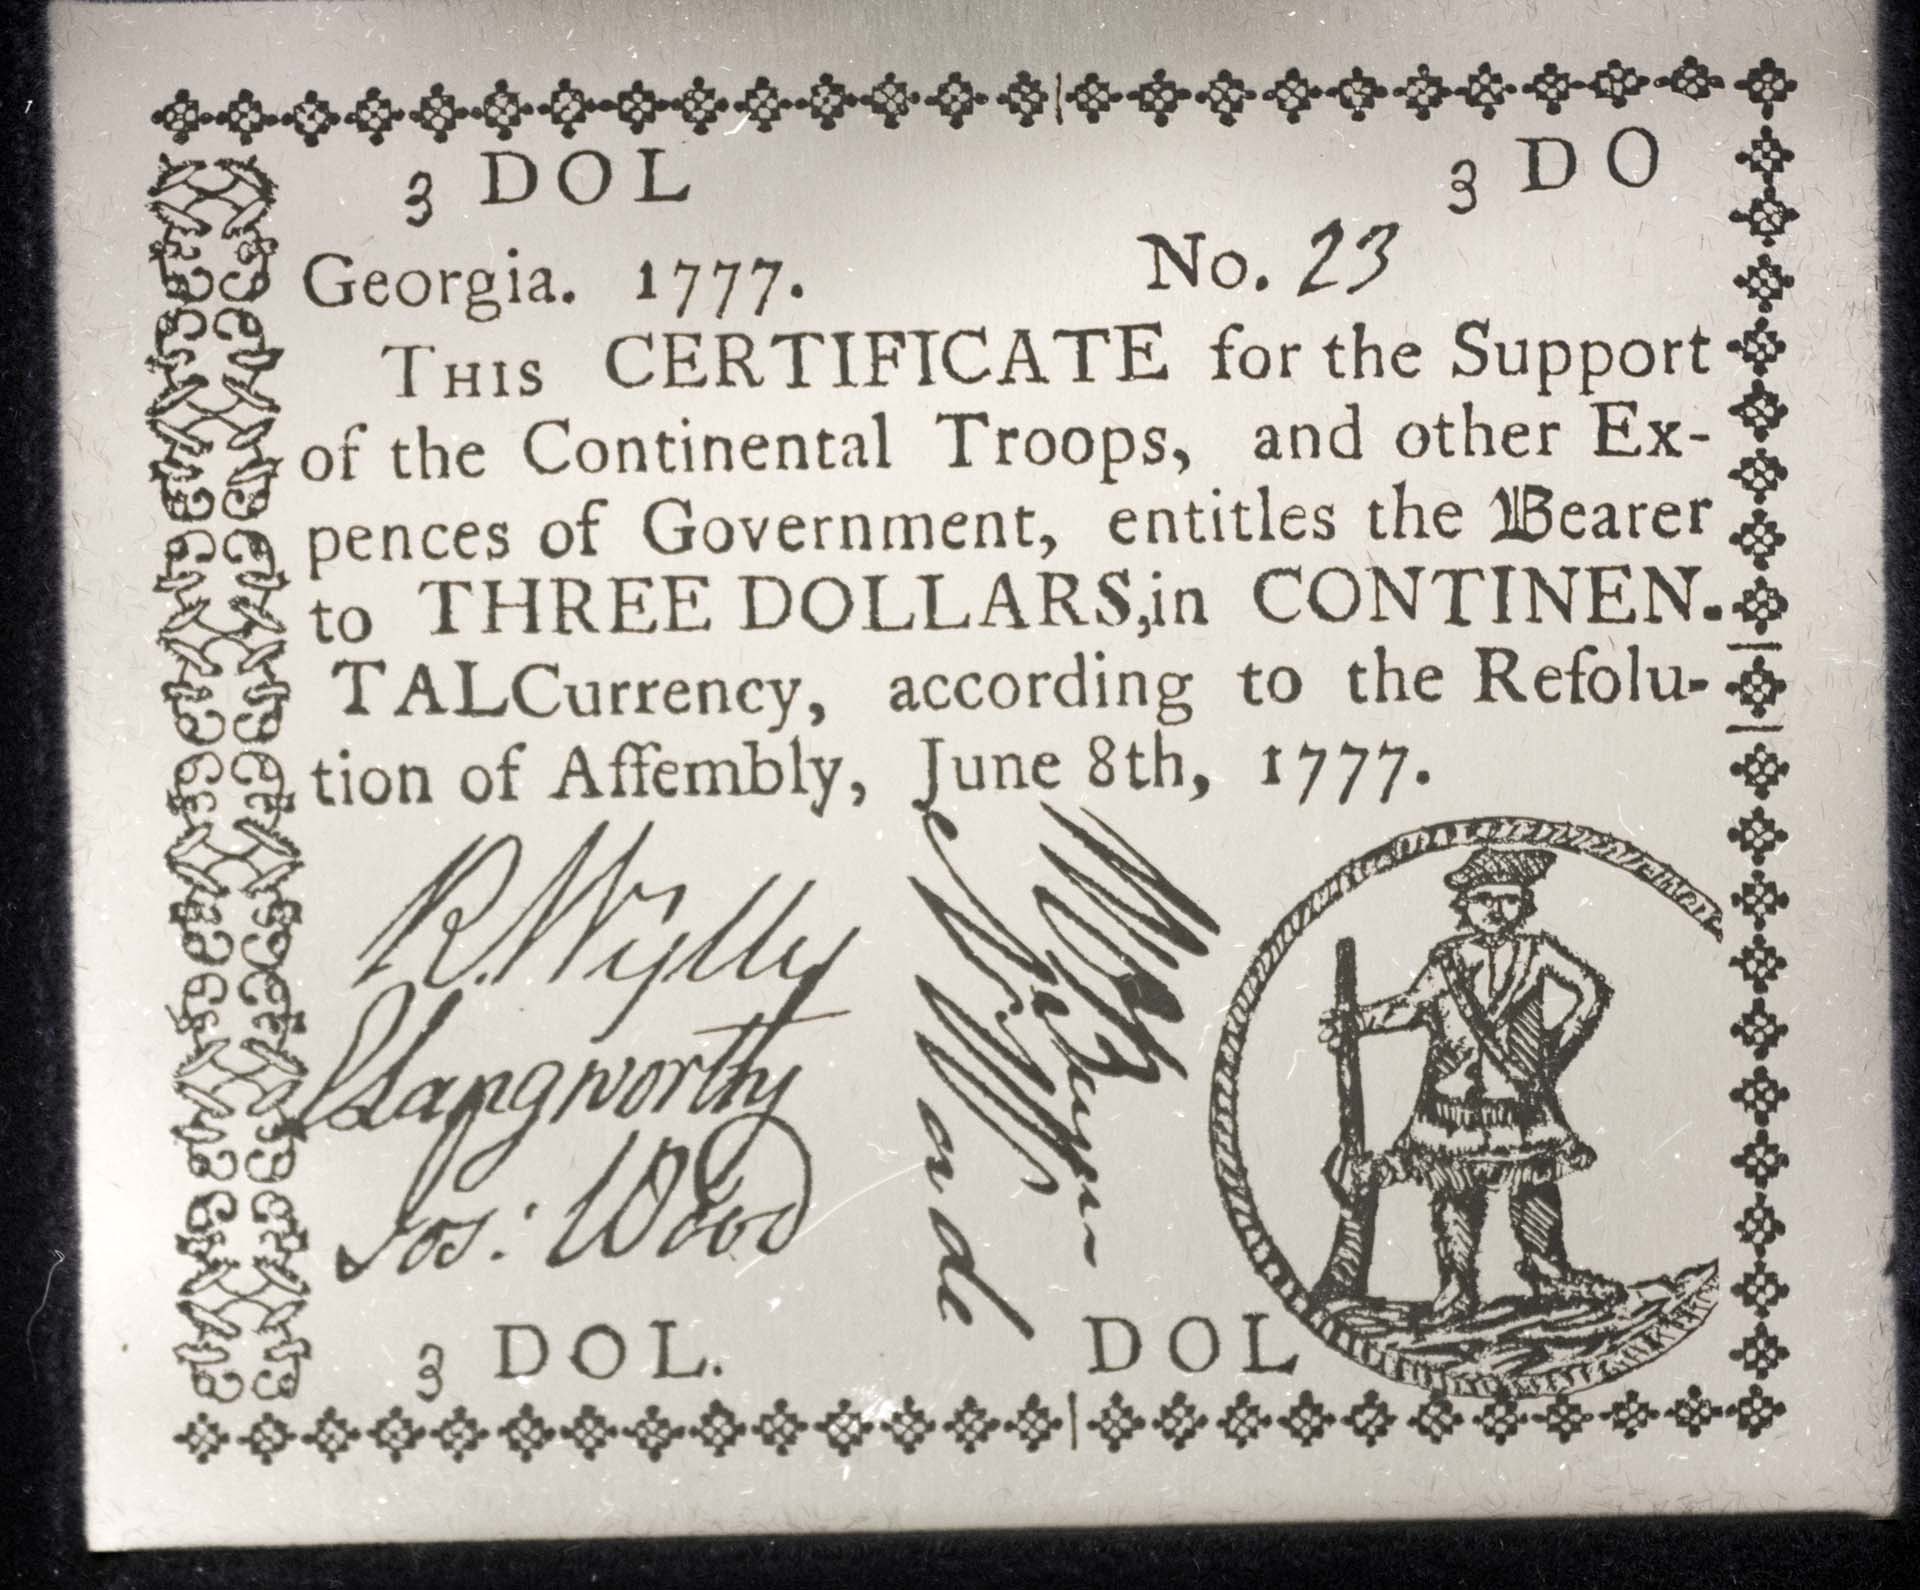 3 DOL 3 DO
Georgia. 1777. No. 23
THIS CERTIFICATE for the Support
of the Continental Troops, and other Ex-
pences of Government, entitles the Bearer
to THREE DOLLARS, in CONTINEN.
TAL Currency, according to the Reſolu-
tion of Aſſembly, June 8th, 1777.
R. Wylly
Langworthy
Jos: Wood
3 DOL. DOL